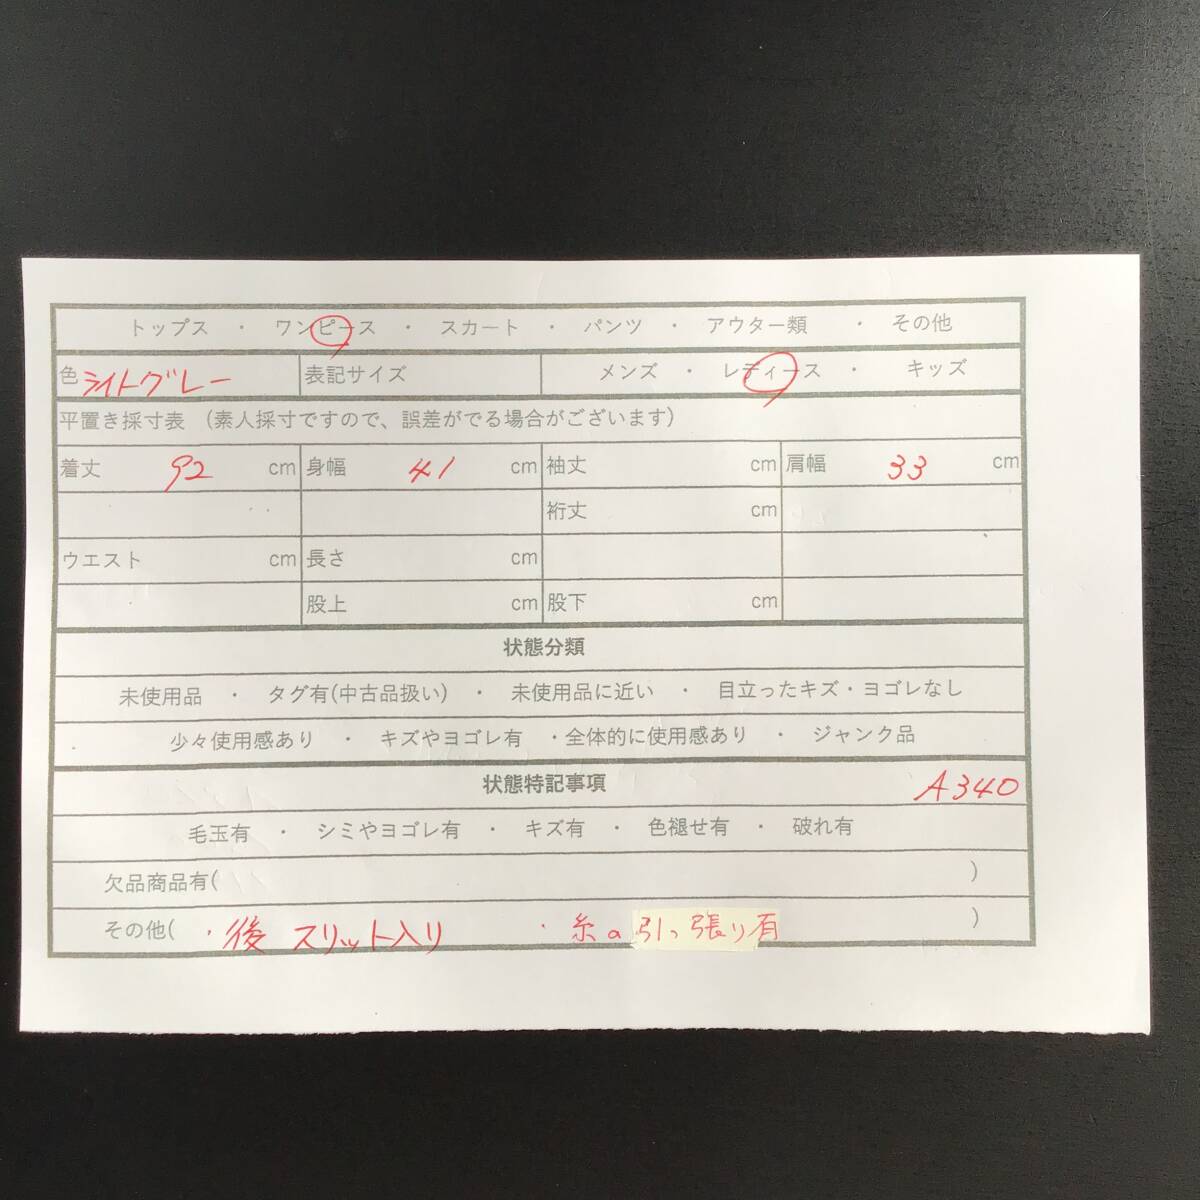 トップス ・ ワンピース ・ スカート ・ パンツ ・ アウター類 ・ その他
色 ライトグレー 表記サイズ メンズ ・ レディース ・ キッズ
平置き採寸表 (素人採寸ですので、誤差がでる場合がございます)
着丈 92 cm 身幅 41 cm 袖丈 cm 肩幅 33 cm
裄丈 cm
ウエスト cm 長さ cm
股上 cm 股下 cm
状態分類
未使用品 ・ タグ有(中古品扱い) ・ 未使用品に近い ・ 目立ったキズ・ヨゴレなし
少々使用感あり ・ キズやヨゴレ有 ・全体的に使用感あり ・ ジャンク品
状態特記事項 A340
毛玉有 ・ シミやヨゴレ有 ・ キズ有 ・ 色褪せ有 ・ 破れ有
欠品商品有( )
その他( ・後 スリット入り ・糸の引っ張り有 )